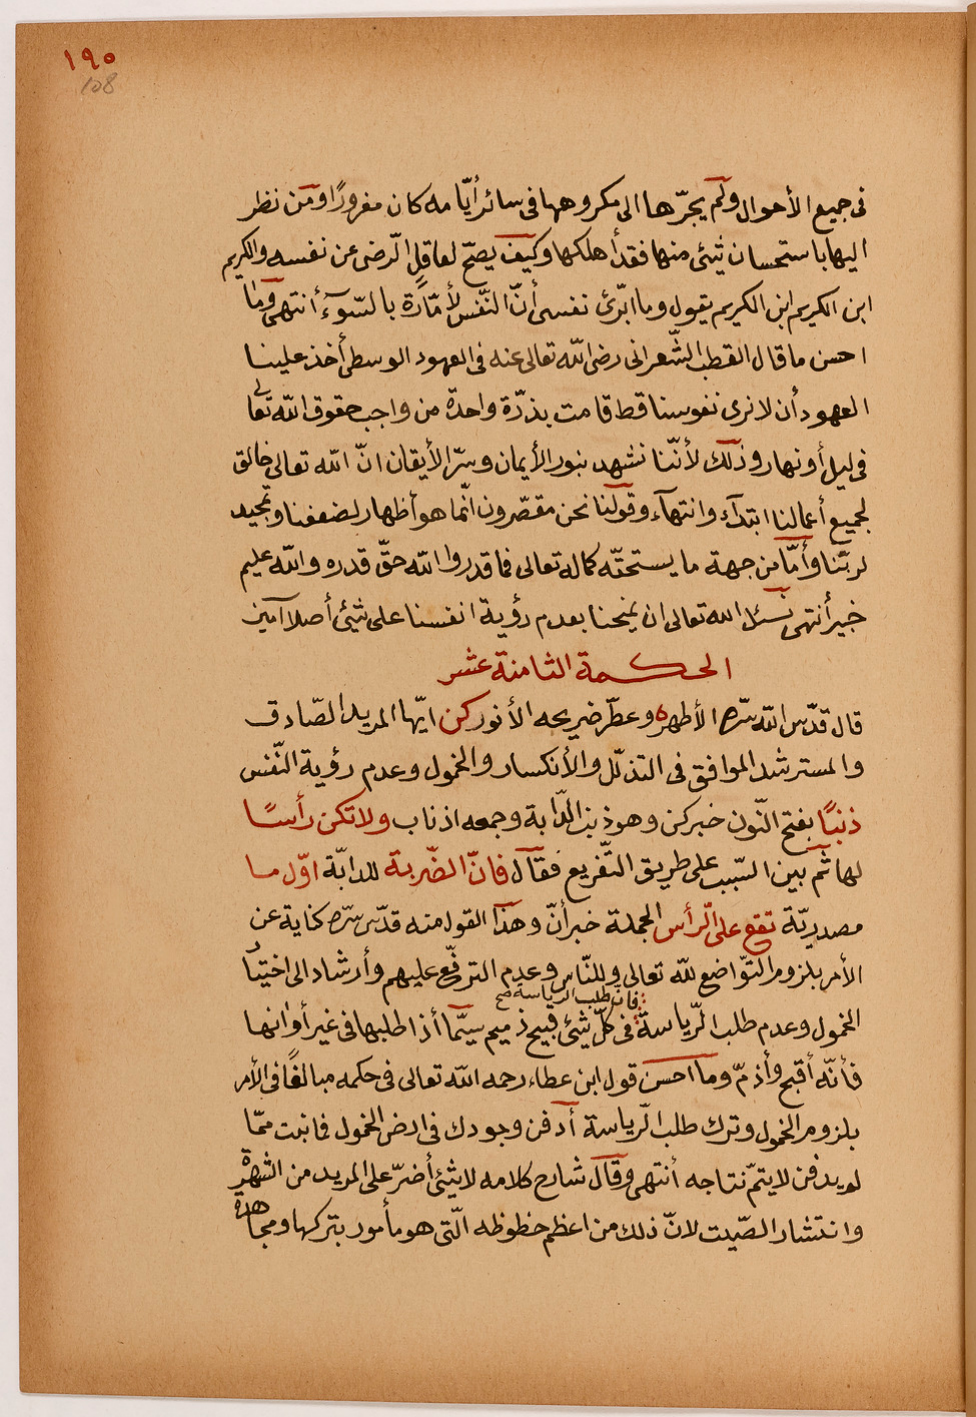 ١٩٠
108
فى جميع الأحوال ولم يجرّها الى مكروهها فى سائر أيّامه كان مغرورًا ومن نظر
اليها باستحسان شئ منها فقد أهلكها وكيف يصحّ لعاقل الرّضى عن نفسه والكريم
ابن الكريم ابن الكريم يقول وما ابرّئ نفسى أنّ النّفس لأمّارة بالسّوء أنتهى وما
احسن ما قال القطب الشّعرانى رضى الله تعالى عنه فى العهود الوسطى أخذ علينا
العهود أن لا نرى نفوسنا قط قامت بذرّة واحدة من واجب حقوق الله تعالى
فى ليل أو نهار وذلك لأنّنا نشهد بنور الأيمان وسرّ الأيقان انّ الله تعالى خالق
لجميع أعمالنا ابتدآء وانتهآء وقولنا نحن مقصّرون انّما هو أظهار لضعفنا وتمجيد
لربّنا وأمّا من جهة ما يستحقّه كماله تعالى فما قدروا الله حقّ قدره والله عليم
خبير أنتهى نسئل الله تعالى ان يمنحنا بعدم رؤية انفسنا على شئ أصلا آمين
الحكمة الثامنة عشر
قال قدّس الله سرّه الأطهر وعطّر ضريحه الأنور كن ايّها المريد الصّادق
والمسترشد الموافق فى التذلّل والأنكسار والخمول وعدم رؤية النّفس
ذنبًا بفتح النّون خبر كن وهو ذنب الدّابة وجمعه اذناب ولا تكن رأسًا
لها ثمّ بين السّبب على طريق التّفريع فقال فانّ الضّربة للدابّة اوّل ما
مصدريّة تقع على الرّأس الجملة خبر أنّ وهذا القول منه قدّس سرّه كناية عن
الأمر بلزوم التّواضع لله تعالى وللنّاس وعدم الترفّع عليهم وأرشاد الى اختيار
فانّ طلب الرياسة صح
الخمول وعدم طلب الرّياسة فى كلّ شئ قبيح ذميم سيّما أذا طلبها فى غير أوانها
فأنّه أقبح وأذمّ وما احسن قول ابن عطاء رحمه الله تعالى فى حكمه مبالغًا فى الأمر
بلزوم الخمول وترك طلب الرّياسة أدفن وجودك فى ارض الخمول فما نبت ممّا
لم يدفن لا يتمّ نتاجه أنتهى وقال شارح كلامه لا شئ أضرّ على المريد من الشهرة
وانتشار الصّيت لانّ ذلك من اعظم حظوظه الّتى هو مأمور بتركها ومجاهدة